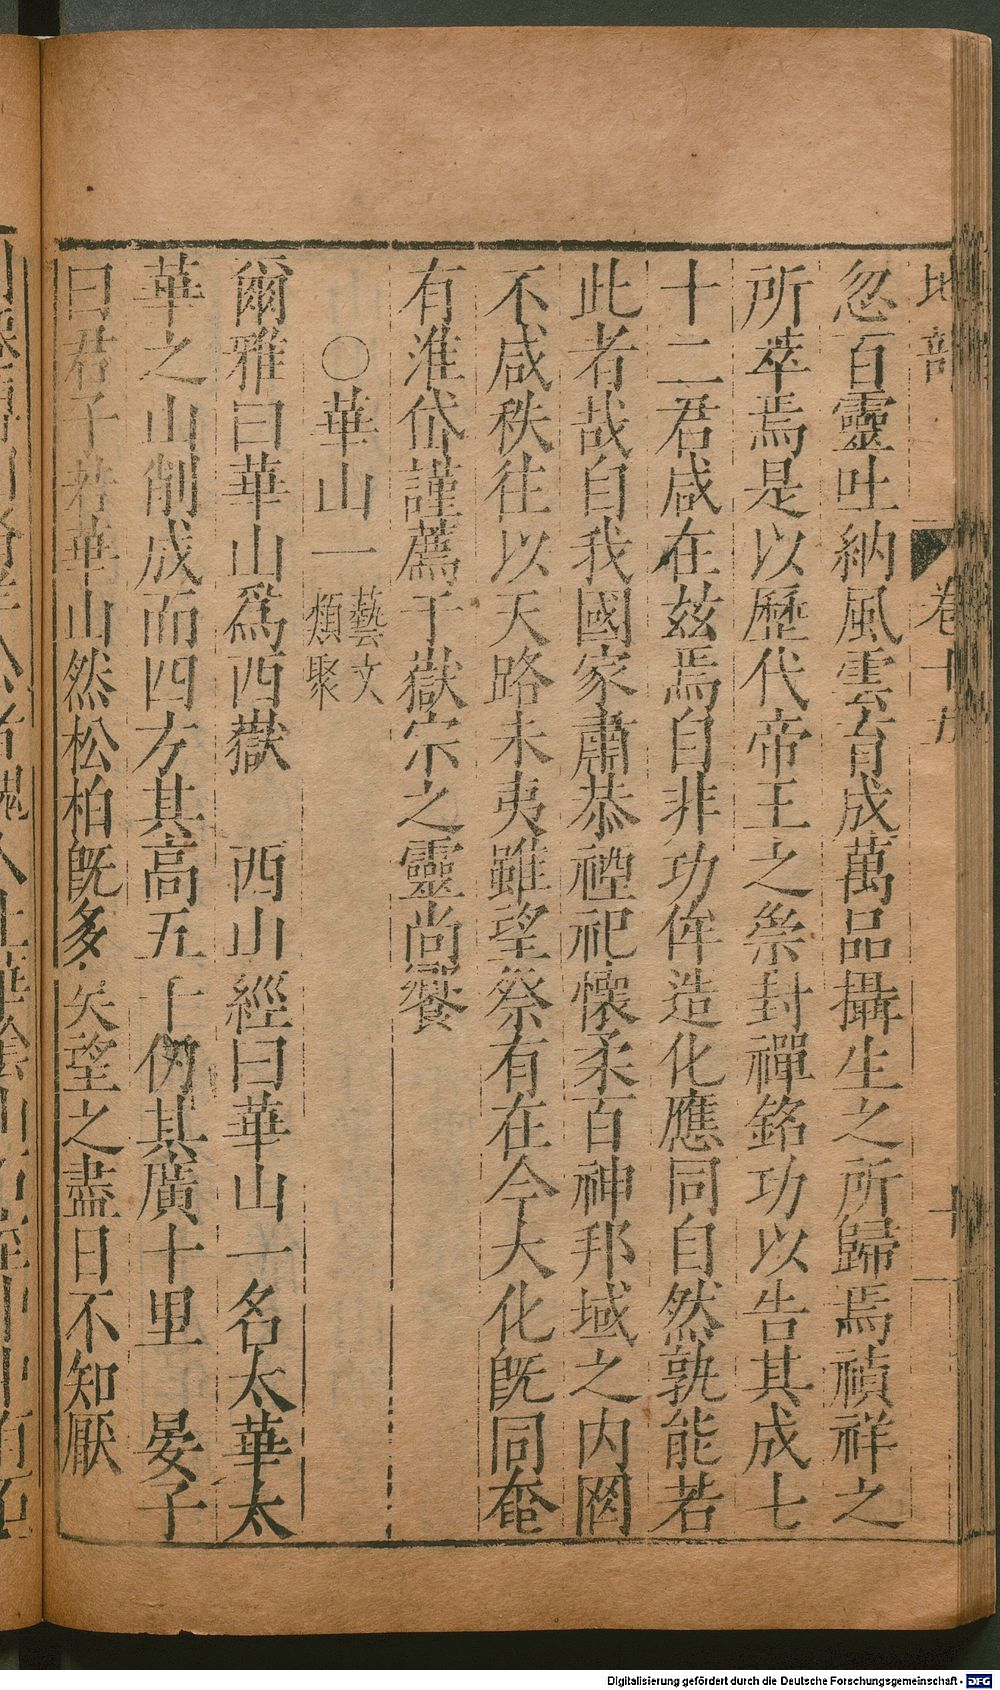 地部
卷十九
十
忽百靈吐納風雲育成萬品攝生之所歸焉禎祥之
所萃焉是以歷代帝王之崇封禪銘功以告其成七
十二君咸在茲焉自非功侔造化應同自然孰能若
此者哉自我國家肅恭禋祀懷柔百神邦域之內罔
不咸秩往以天路未夷雖望祭有在今大化旣同奄
有淮岱謹薦于嶽宗之靈尚饗
○華山一藝文類聚
爾雅曰華山爲西嶽 西山經曰華山一名太華太
華之山削成而四方其高五千仞其廣十里 晏子
曰君子若華山然松柏旣多矣望之盡日不知厭
Digitalisierung gefördert durch die Deutsche Forschungsgemeinschaft - DFG